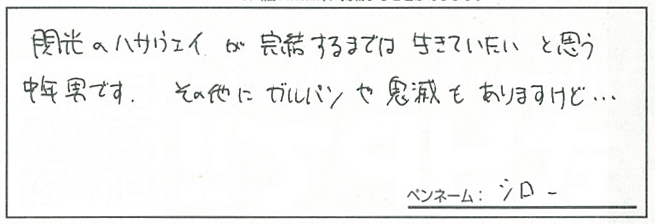 閃光のハサウェイ が 完結するまでは 生きていたい と思う
中年男です. その他に ガルパン や 鬼滅 も ありますけど…
ペンネーム: シロー